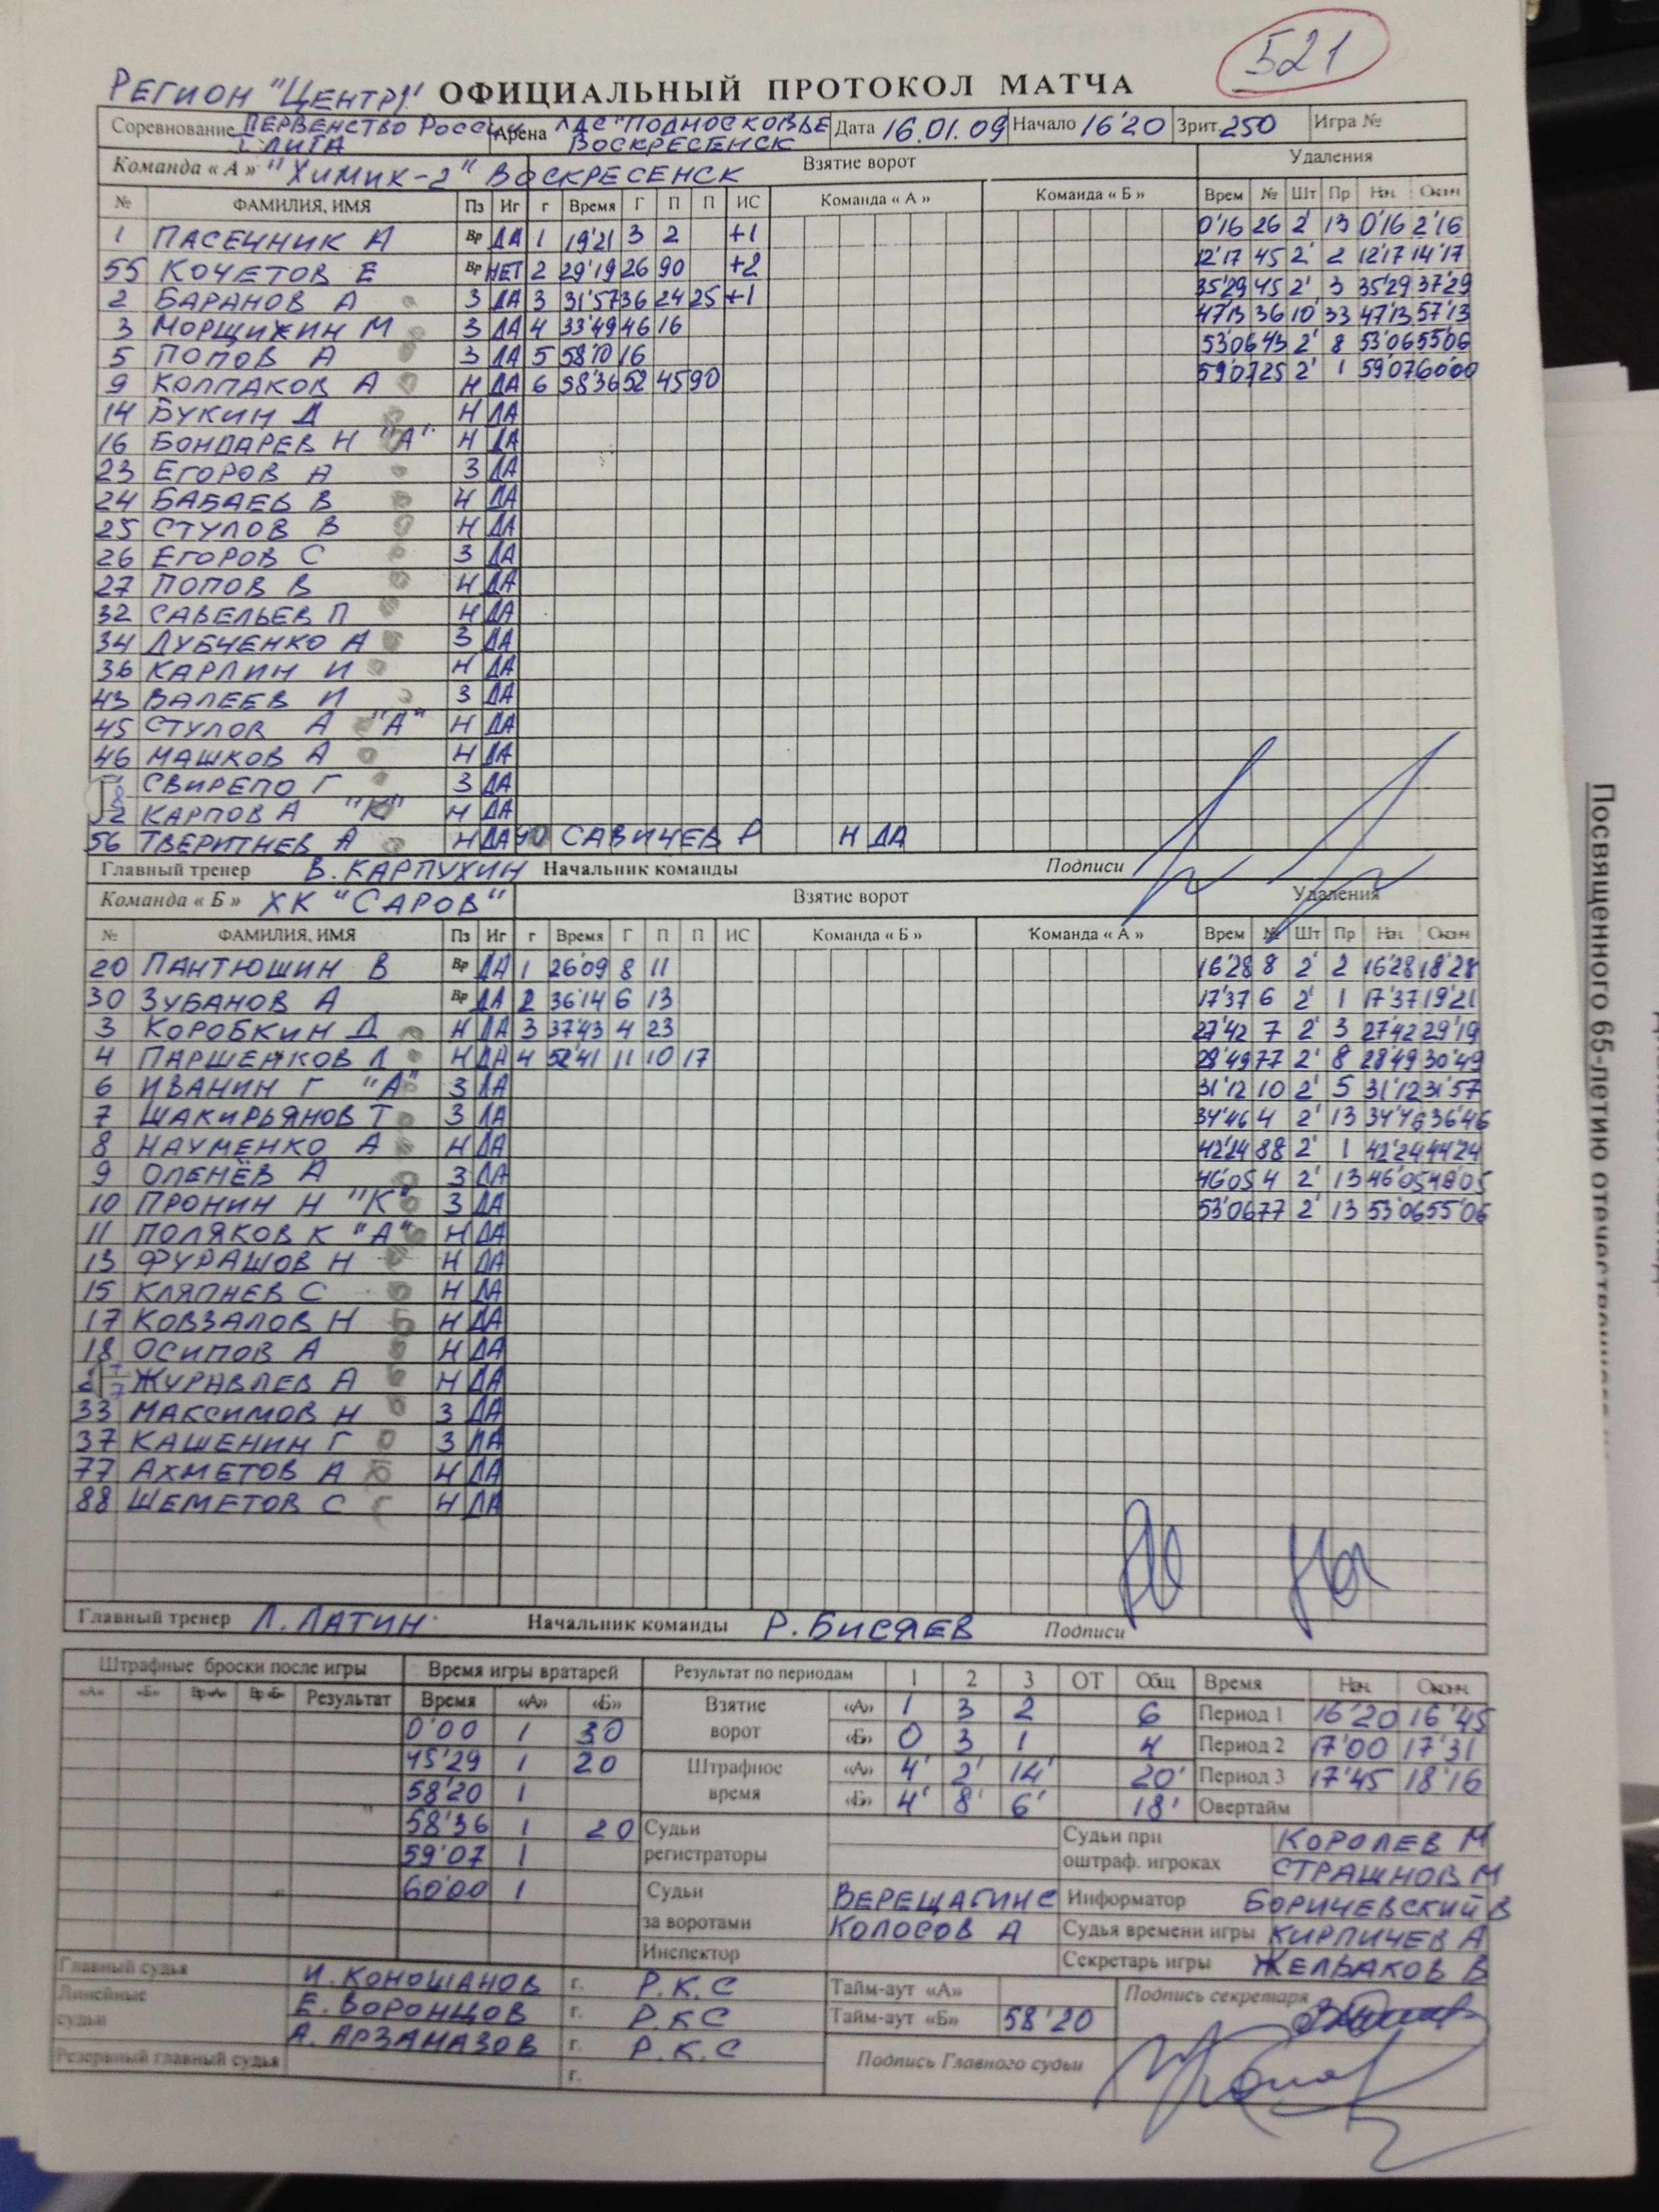 521
РЕГИОН "ЦЕНТР" ОФИЦИАЛЬНЫЙ ПРОТОКОЛ МАТЧА
Соревнование ПЕРВЕНСТВО РОССИИ Арена ЛДС "ПОДМОСКОВЬЕ Дата 16.01.09 Начало 16'20 Зрит. 250 Игра №
I ЛИГА ВОСКРЕСЕНСК
Команда « А » "ХИМИК-2" ВОСКРЕСЕНСК Взятие ворот Удаления
№ ФАМИЛИЯ, ИМЯ Пз Иг г Время Г П П ИС Команда « А » Команда « Б » Врем № Шт Пр Нач Оконч
1 ПАСЕЧНИК А Вр ДА 1 19'21 3 2 +1 0'16 26 2' 13 0'16 2'16
55 КОЧЕТОВ Е Вр НЕТ 2 29'19 26 90 +2 12'17 45 2' 2 12'17 14'17
2 БАРАНОВ А З ДА 3 31'57 36 24 25 +1 35'29 45 2' 3 35'29 37'29
3 МОРЩИХИН М З ДА 4 33'49 46 16 47'13 36 10' 33 47'13 57'13
5 ПОПОВ А З ДА 5 58'10 16 53'06 43 2' 8 53'06 55'06
9 КОЛПАКОВ А Н ДА 6 58'36 52 45 90 59'07 25 2' 1 59'07 60'00
14 БУКИН Д Н ДА
16 БОНДАРЕВ Н "А" Н ДА
23 ЕГОРОВ А З ДА
24 БАБАЕВ В Н ДА
25 СТУЛОВ В Н ДА
26 ЕГОРОВ С З ДА
27 ПОПОВ В Н ДА
32 САВЕЛЬЕВ П Н ДА
34 ДУБЧЕНКО А З ДА
36 КАРЛИН И Н ДА
43 ВАЛЕЕВ И З ДА
45 СТУЛОВ А "А" Н ДА
46 МАШКОВ А Н ДА
СВИРЕПО Г З ДА
КАРПОВ А "К" Н ДА
56 ТВЕРИТНЕВ А Н ДА 90 САВИЧЕВ Р Н ДА
Главный тренер В. КАРПУХИН Начальник команды Подписи
Команда « Б » ХК "САРОВ" Взятие ворот Удаления
№ ФАМИЛИЯ, ИМЯ Пз Иг г Время Г П П ИС Команда « Б » Команда « А » Врем № Шт Пр Нач Оконч
20 ПАНТЮШИН В Вр ДА 1 26'09 8 11 16'28 8 2' 2 16'28 18'28
30 ЗУБАНОВ А Вр ДА 2 36'14 6 13 17'37 6 2' 1 17'37 19'21
3 КОРОБКИН Д Н ДА 3 37'43 4 23 27'42 7 2' 3 27'42 29'19
4 ПАРШЕНКОВ Л Н ДА 4 52'41 11 10 17 28'49 77 2' 8 28'49 30'49
6 ИВАНИН Г "А" З ДА 31'12 10 2' 5 31'12 31'57
7 ШАКИРЬЯНОВ Т З ДА 34'46 4 2' 13 34'46 36'46
8 НАУМЕНКО А Н ДА 42'24 88 2' 1 42'24 44'24
9 ОЛЕНЁВ А З ДА 46'05 4 2' 13 46'05 48'05
10 ПРОНИН Н "К" З ДА 53'06 77 2' 13 53'06 55'06
11 ПОЛЯКОВ К "А" Н ДА
13 ФУРАШОВ Н Н ДА
15 КЛЯПНЕВ С Н ДА
17 КОВЗАЛОВ Н Н ДА
18 ОСИПОВ А Н ДА
ЖУРАВЛЕВ А Н ДА
33 МАКСИМОВ Н З ДА
37 КАШЕНИН Г З ДА
77 АХМЕТОВ А Н ДА
88 ШЕМЕТОВ С Н ДА
Главный тренер Л. ЛАТИН Начальник команды Р. БИСЯЕВ Подписи
Штрафные броски после игры Время игры вратарей Результат по периодам 1 2 3 ОТ Общ Время Нач. Оконч.
«А» «Б» Вр«А» Вр«Б» Результат Время «А» «Б» Взятие ворот «А» 1 3 2 6 Период 1 16'20 16'45
0'00 1 30 «Б» 0 3 1 4 Период 2 17'00 17'31
45'29 1 20 Штрафное время «А» 4' 2' 14' 20' Период 3 17'45 18'16
58'20 1 «Б» 4' 8' 6' 18' Овертайм
58'36 1 20 Судьи регистраторы Судьи при оштраф. игроках КОРОЛЕВ М
59'07 1 СТРАШНОВ М
60'00 1 Судьи за воротами ВЕРЕЩАГИН С Информатор БОРИЧЕВСКИЙ В
КОЛОСОВ А Судья времени игры КИРПИЧЕВ А
Инспектор Секретарь игры ЖЕЛБАКОВ В
Главный судья И. КОНОШАНОВ г. Р.К.С Тайм-аут «А» Подпись секретаря
Линейные судьи Е. ВОРОНЦОВ г. Р.К.С Тайм-аут «Б» 58'20
А. АРЗАМАЗОВ г. Р.К.С Подпись Главного судьи
Резервный главный судья г.
Посвященного 65-летию